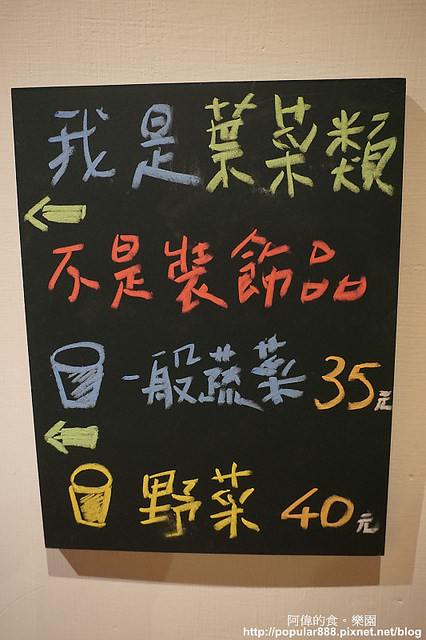 我是葉菜類
不是裝飾品
一般蔬菜 35元
野菜 40元
阿偉的食。樂園
http://popular888.pixnet.net/blog